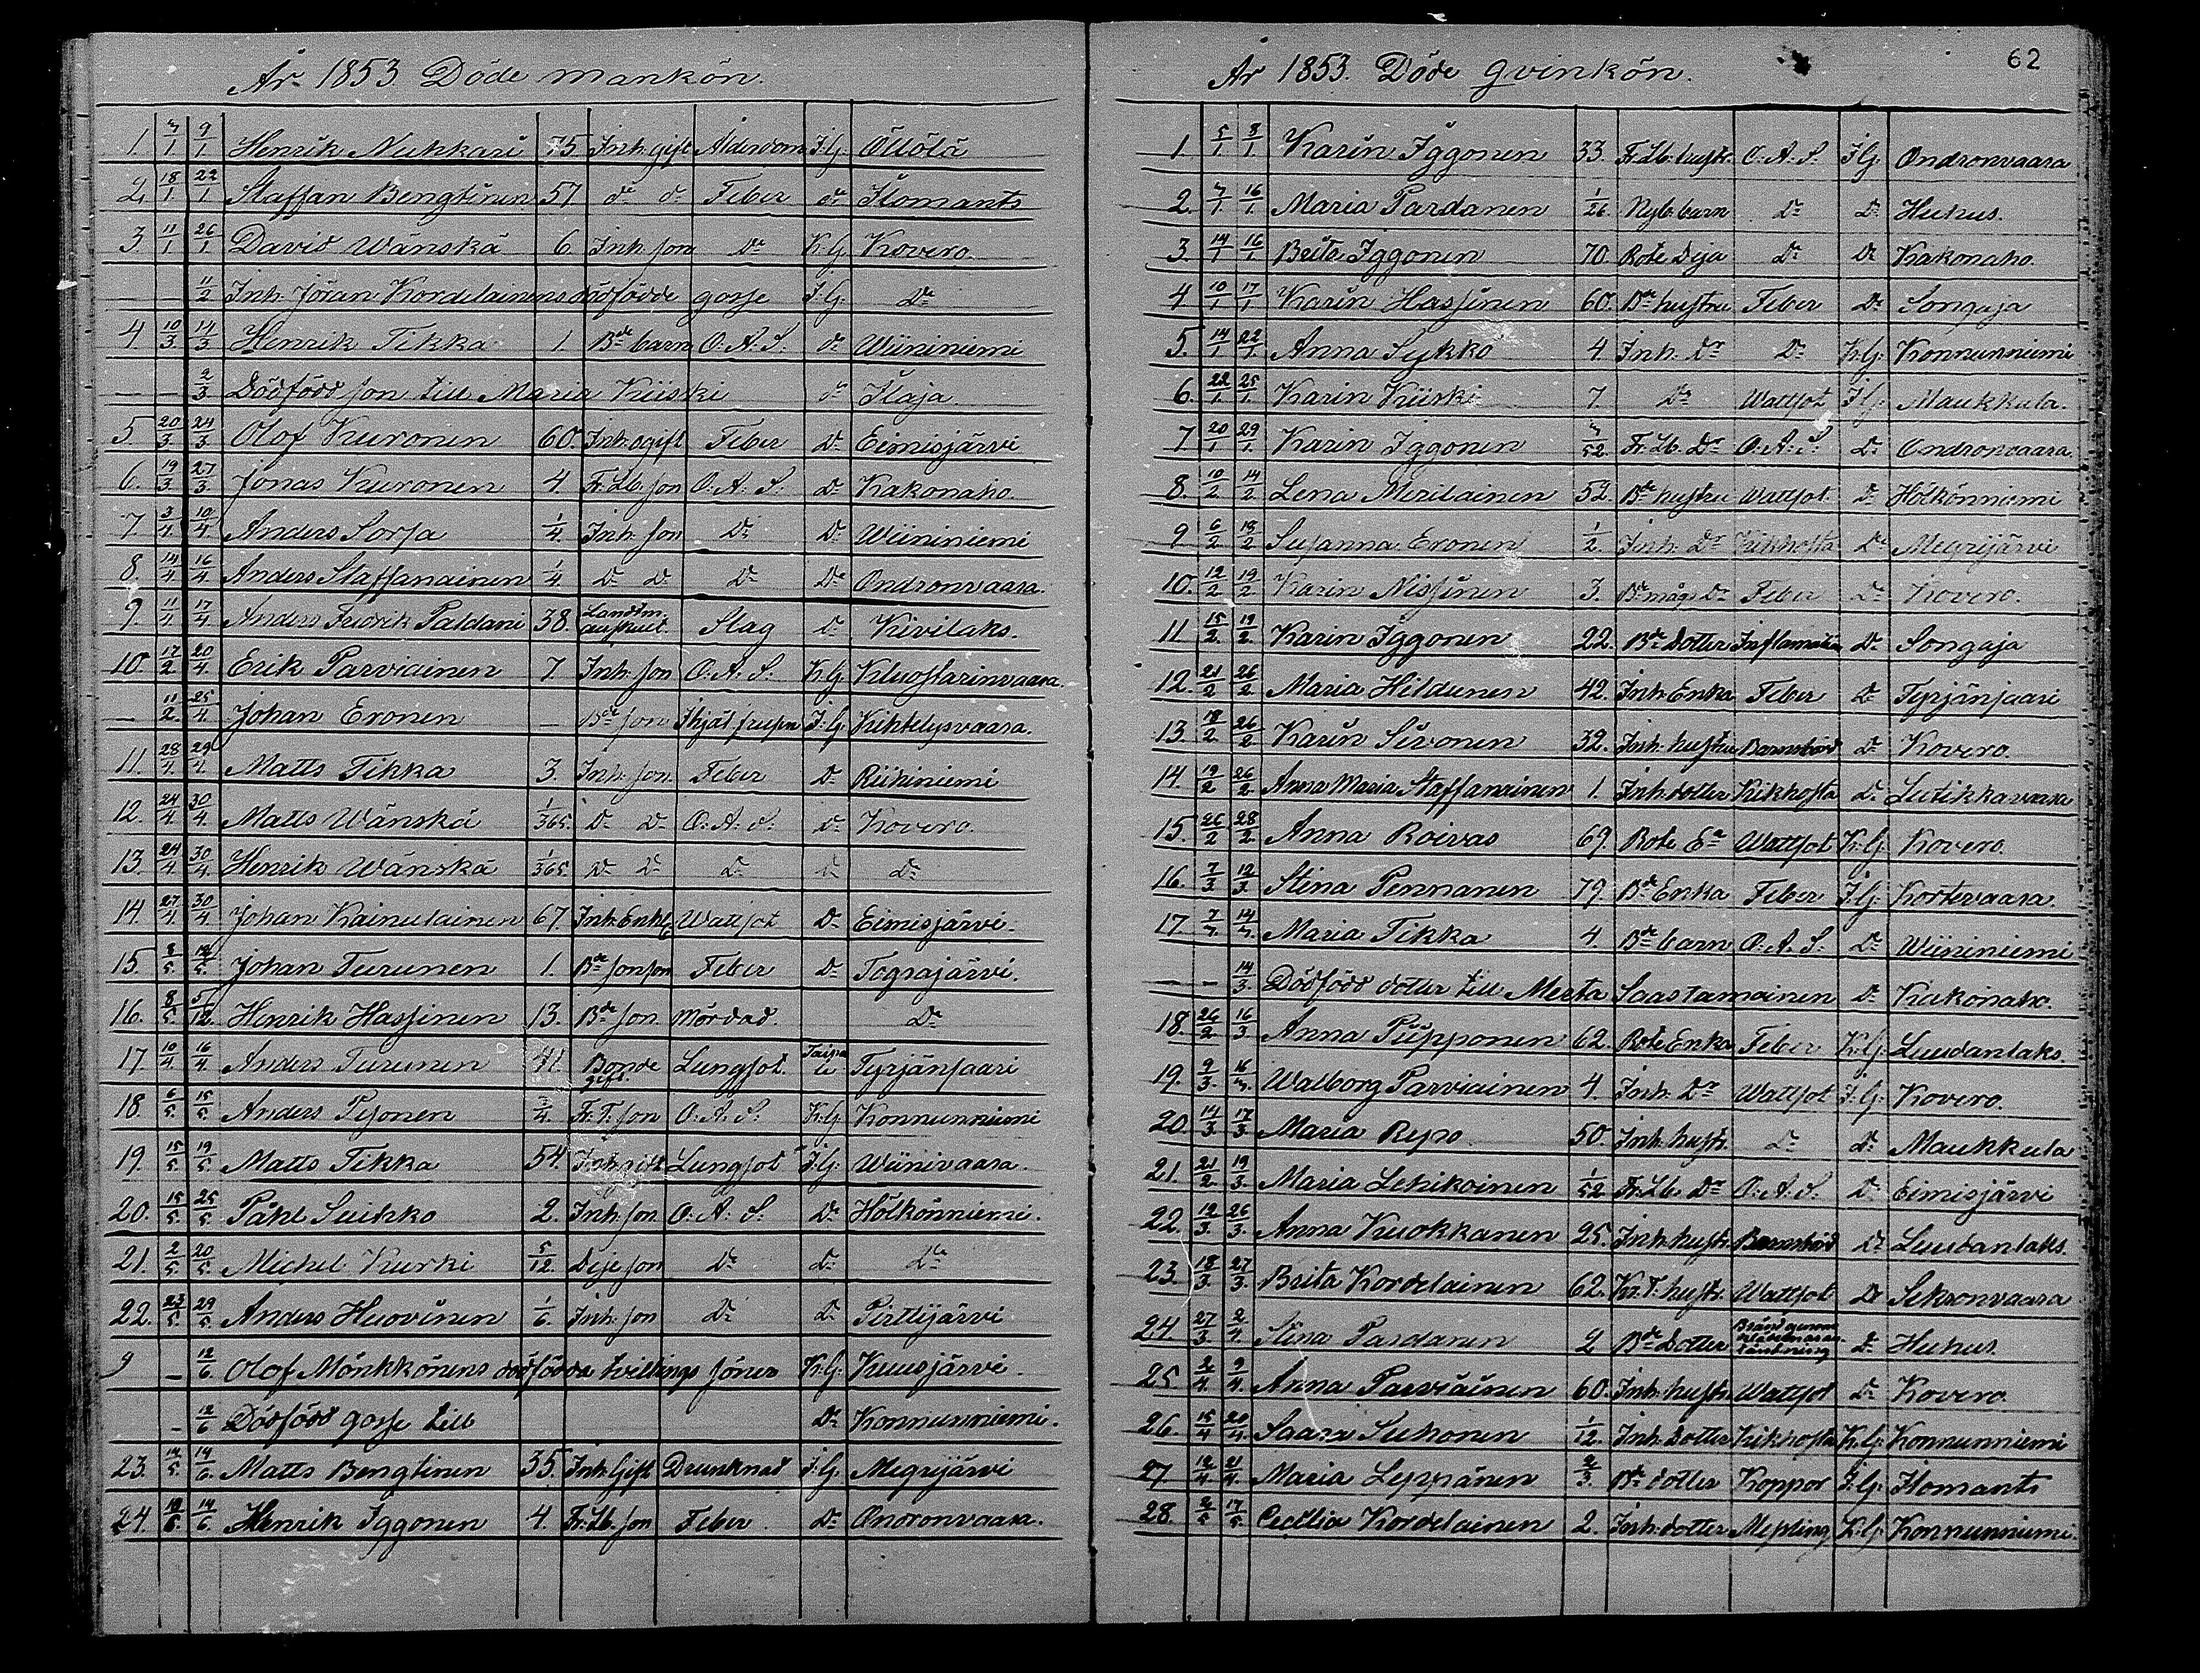 År 1853 Döde mankön.
1. 7/1 9/1 Henrik Nukkari 75. Inh. gift Ålderdom I.G. Öllölä
2. 18/1 22/1 Staffan Bengtinen 57 do do Feber do Ilomants
3. 11/1 26/1 David Wänskä 6. Inh. son Do K.G. Kovero.
— — 11/2 Inh. Jöran Kordelainens dödfödde gosse I.G. Do
4 10/3 14/3 Henrik Tikka 1. Bde barn O.A.S. do Wiininiemi
— — 2/3 Dödfödd son till Maria Kiiski do Ilaja.
5. 20/3 24/3 Olof Kuronen 60. Inh. ogift Feber Do Eimisjärvi
6. 19/3 27/3 Jonas Kuronen 4. Fr. Lb. son O.A.S. Do Kakonaho
7. 3/4 10/4 Anders Sorsa 1/4 Inh. son Do Do Wiininiemi
8. 14/4 16/4 Anders Staffanainen 1/4 Do Do Do Do Ondronvaara.
9. 11/4 17/4 Anders Fredrik Paldani 38. Landtm. auskult. Slag do Kivilaks.
10. 17/2 20/4 Erik Parviainen 7 Inh. son O.A.S. K.G. Kluostarinvaara.
— 11/2 25/4 Johan Eronen — Bde son I.G. Kiktelysvaara.
11. 28/4 29/4 Matts Tikka 3. Inh. son Feber Do Riihiniemi
12. 24/4 30/4 Matts Wänskä 1/365. Do Do O.A.S. do Kovero.
13. 24/4 30/4 Henrik Wänskä 1/365 Do Do Do Do Do
14. 27/4 30/4 Johan Kainulainen 67. Inh. Enkl. Wattsot Do Eimisjärvi.
15. 8/5 12/5 Johan Turunen 1. Bde sonson Feber Do Tograjärvi.
16. 8/5 5/12 Henrik Hassinen 13. Bde son. Mördad. Do
17. 10/4 16/4 Anders Turunen 41. Bonde gift. Lungsot. Taipale Tyrjänsaari
18. 6/5 15/5 Anders Pesonen 3/4 Fr. T. son O.A.S. K.G. Konnunniemi
19. 15/5 19/5 Matts Tikka 54. Inh. gift Lungsot I.G. Wiinivaara.
20. 15/5 25/5 Påhl Suikko 2. Inh. son. O.A.S. Do Hölkönniemi.
21. 2/5 20/5 Michel Kurki 5/12. Deje son Do do Do
22. 23/5 29/5 Anders Huovinen 1/6. Inh. son Do Do Pirttijärvi
9 — 12/6 Olof Mönkkönens dödfödda tvillings söner K.G. Kuusjärvi.
— 12/6 Dödfödd gosse till Do Konnunniemi.
23. 14/5 14/6 Matts Bengtinen 35. Inh. Gift Drunknad I.G. Megrijärvi
24. 10/6 14/6 Henrik Iggonen 4. Fr. Lb. son Feber. Do Ondronvaara.
62
År 1853. Döde qvinkön.
1. 5/1 8/1 Karin Iggonen 33. Fr. Lb. hustr. O.A.S. I.G. Ondronvaara
2. 7/1 16/1 Maria Pardanen 1/26 Nyb. barn Do Do Huhus.
3 14/1 16/1 Brita Iggonen 70. Rote Deja Do Do Kakonaho.
4 10/1 17/1 Karin Hassinen 60. Bde hustru Feber Do Songaja
5. 14/1 22/1 Anna Sykkö 4. Inh. Dr Do K.G. Konnunniemi
6. 22/1 25/1 Karin Kiiski 7. Do Wattsot I.G. Maukkula.
7 20/1 29/1 Karin Iggonen 3/52 Fr. Lb. Dr O.A.S. Do Ondronvaara
8. 10/2 14/2 Lena Meriläinen 52. Bde hustru Wattsot Do Hölkönniemi
9 6/2 18/2 Susanna Eronen 1/2. Inh. Dr Kikhosta Do Megrijärvi
10. 12/2 19/2 Karin Nissinen 3. Bde mågs Dr Feber Do Kovero.
11 15/2 19/2 Karin Iggonen 22. Bde Dotter Inflamation Do Songaja
12. 21/2 26/2 Maria Hildunen 42. Inh. Enka Feber Do Tyrjänsaari
13 18/2 26/2 Karin Sivonen 32. Inh. hustru Barnsbörd do Kovero.
14. 19/2 26/2 Anna Maria Staffanainen 1. Inh. dotter Kikhosta Do Lutikkavaara
15. 26/2 28/2 Anna Roivas 69. Rote Ea Wattsot K.G. Kovero
16. 7/3 12/3 Stina Pennanen 79. Bde Enka Feber I.G. Kortevaara
17. 7/3 14/3 Maria Tikka 4. Bde barn O.A.S. Do Wiininiemi
— — 14/3 Dödfödd dotter till Merta Saastamoinen do Kakonaho.
18. 26/2 16/3 Anna Piipponen 62. Rote Enka Feber K.G. Luudanlaks
19. 9/3 16/3 Walborg Parviainen 4. Inh. Dr Wattsot I.G. Kovero.
20. 14/3 17/3 Maria Repo 50. Inh. hustr. Do do Maukkula
21. 21/2 19/3 Maria Lehikoinen 1/52 Fr. Lb. Dr O.A.S. Do Eimisjärvi
22. 12/3 26/3. Anna Kuokkanen 25. Inh. hustr. Barnsbörd do Luudanlaks.
23. 18/3 27/3 Brita Kordelainen 62. Kr. T. hustr. Wattsot Do Sikronvaara
24 27/3 2/4 Stina Pardanen 2 Bde Dotter Bränd genom klädernas antändning do Huhus
25 2/4 9/4 Anna Parviainen 60. Inh. hustr. Wattsot Do Kovero.
26. 15/4 20/4 Saara Suhonen 1/12. Inh. dotter Kikhosta K.G. Konnunniemi
27 12/4 21/4 Maria Leppänen 2/3. Bde dotter Koppor I.G. Ilomants
28. 2/5 17/5 Cecilia Kordelainen 2. Inh. dotter Messling K.G. Konnunniemi.